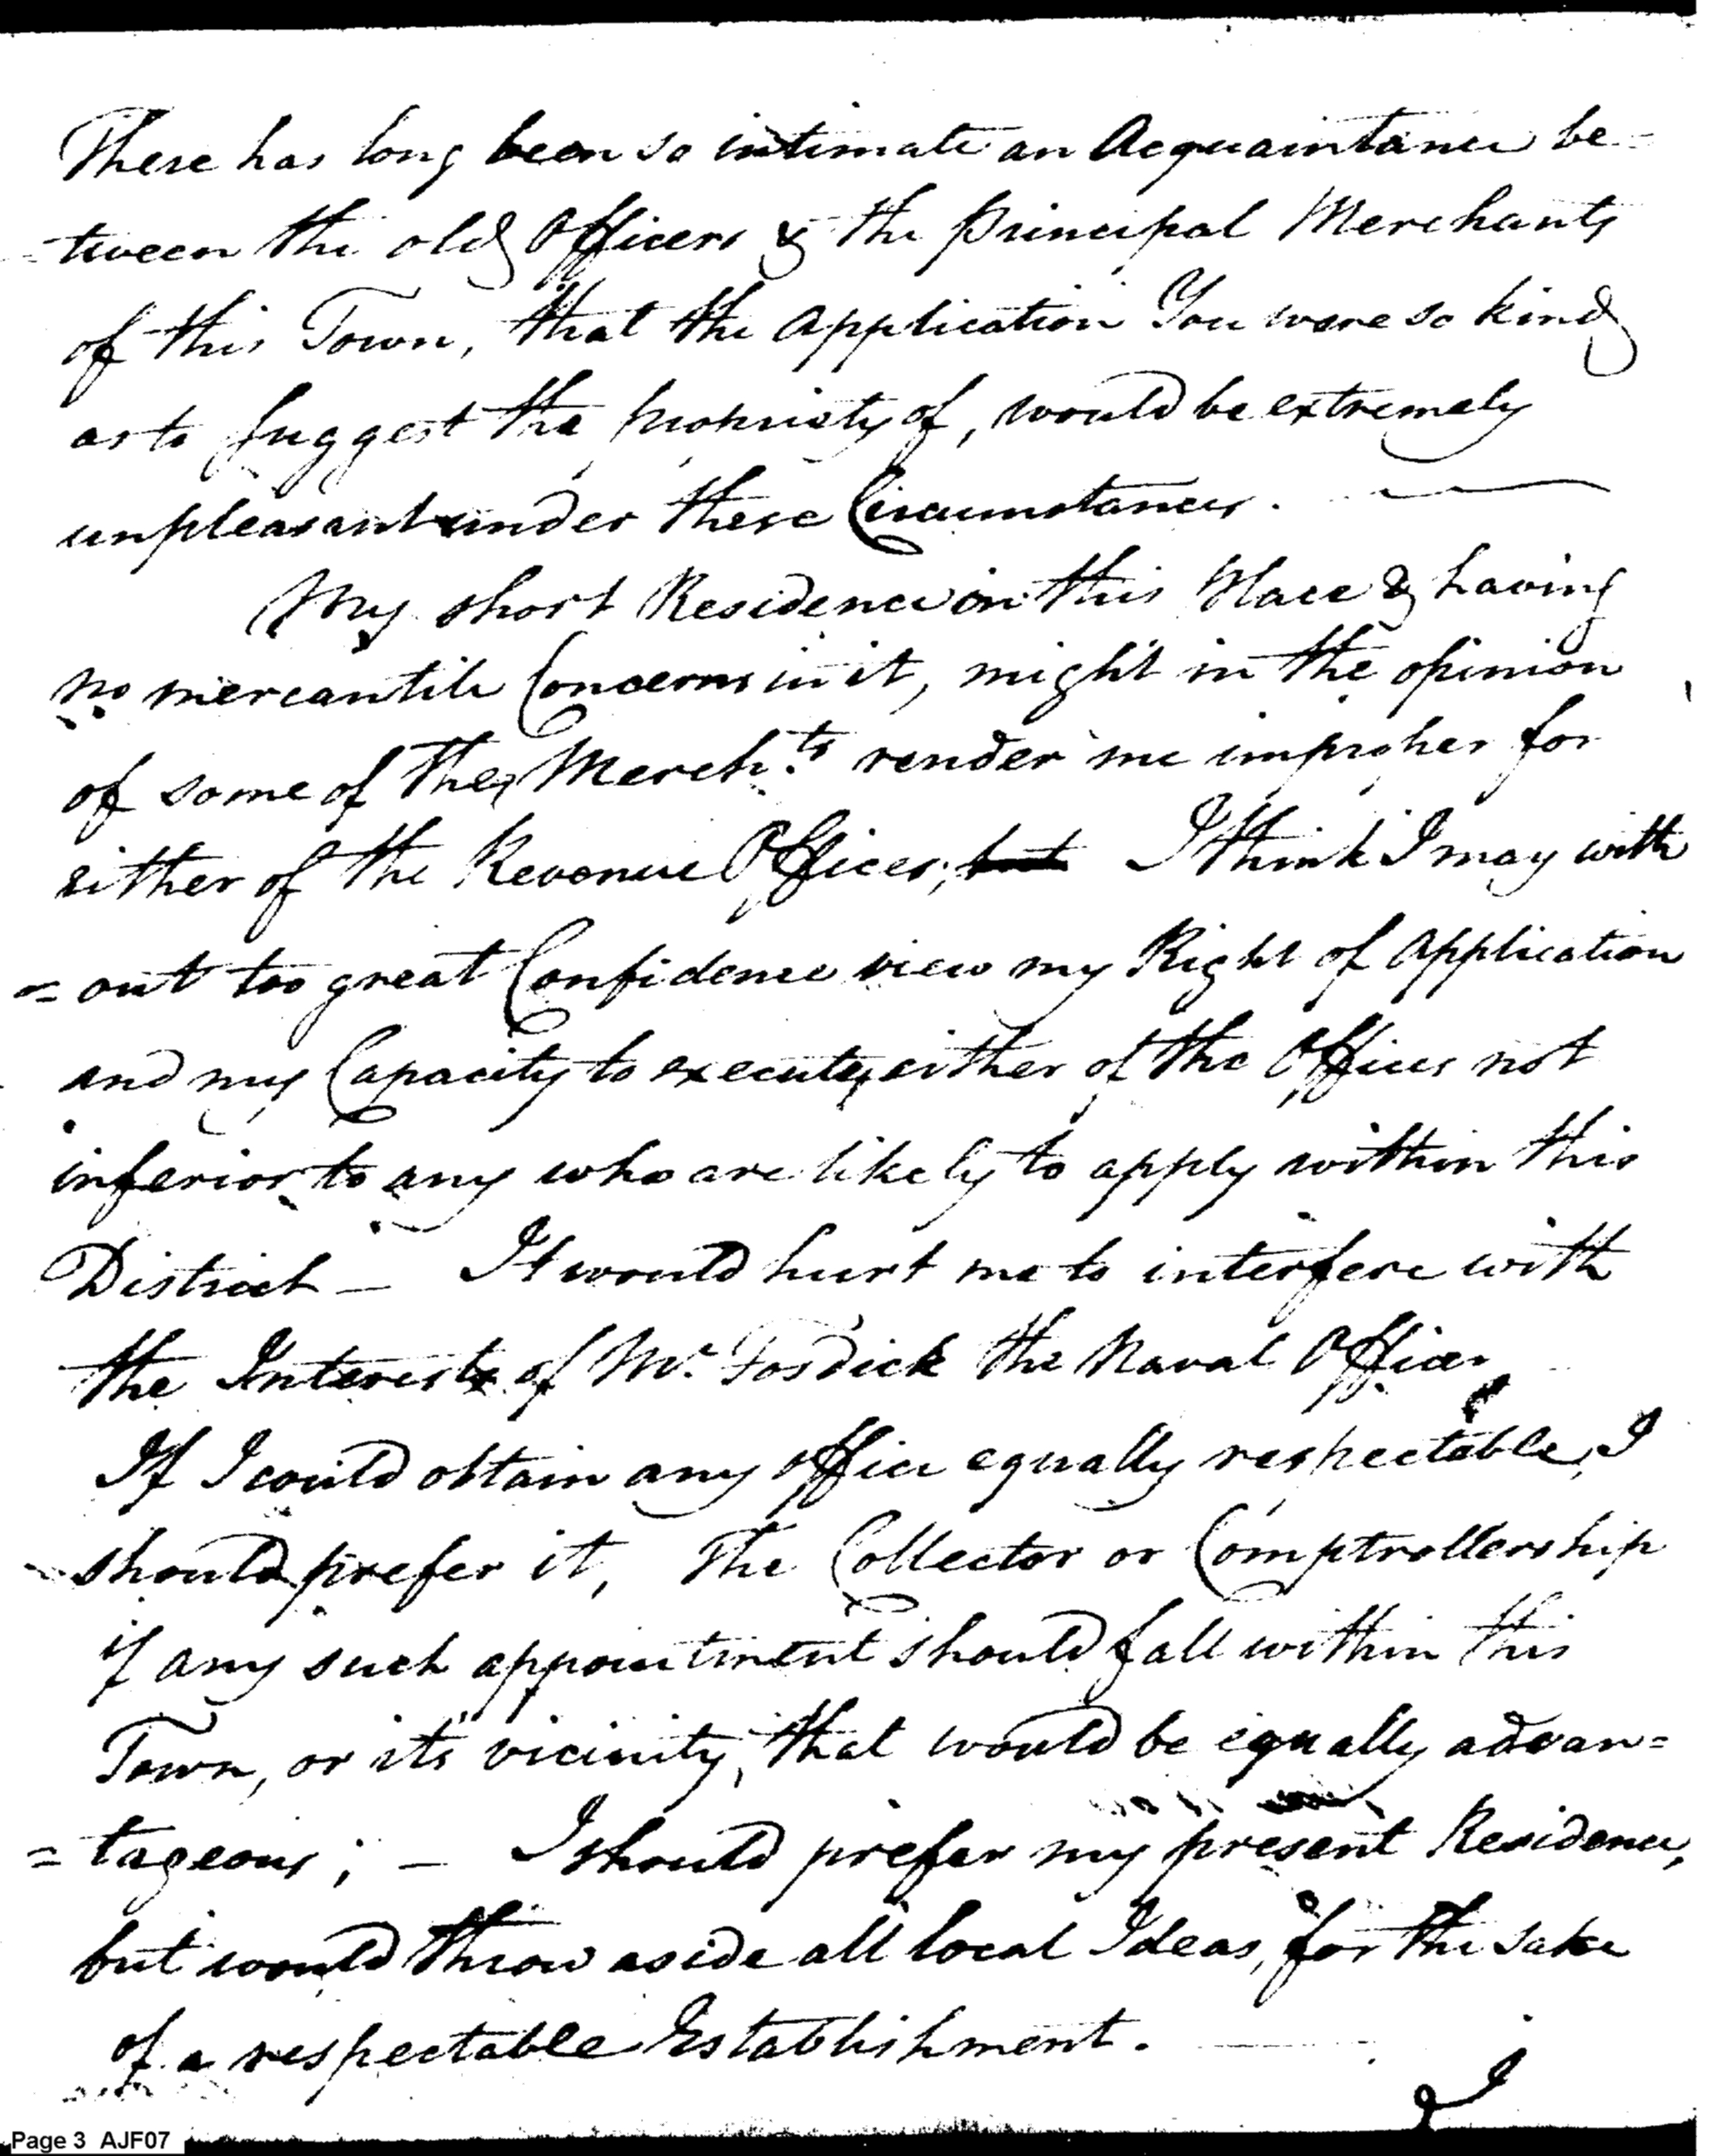 There has long been so intimate an Acquaintance be=
=tween the old Officers & the principal Merchants
of this Town, that the Application You were so kind
as to suggest the propriety of, would be extremely
unpleasant under these Circumstances.
My short Residence in this Place & having
no mercantile Concerns in it, might in the opinion
of some of the Merch.ts render me improper for
either of the Revenue Offices; but I think I may with
=out too great Confidence view my Right of Application
and my Capacity to execute either of the Offices not
inferior to any who are likely to apply within this
District — It would hurt me to interfere with
the Interests of Mr. Fosdick the Naval Officer,
If I could obtain any office equally respectable, I
should prefer it, The Collector or Comptrollership
if any such appointment should fall within this
Town, or it's vicinity, that would be equally advan=
=tageous; — I should prefer my present Residence,
but would throw aside all local Ideas, for the sake
of a respectable Establishment.
I
Page 3 AJF07